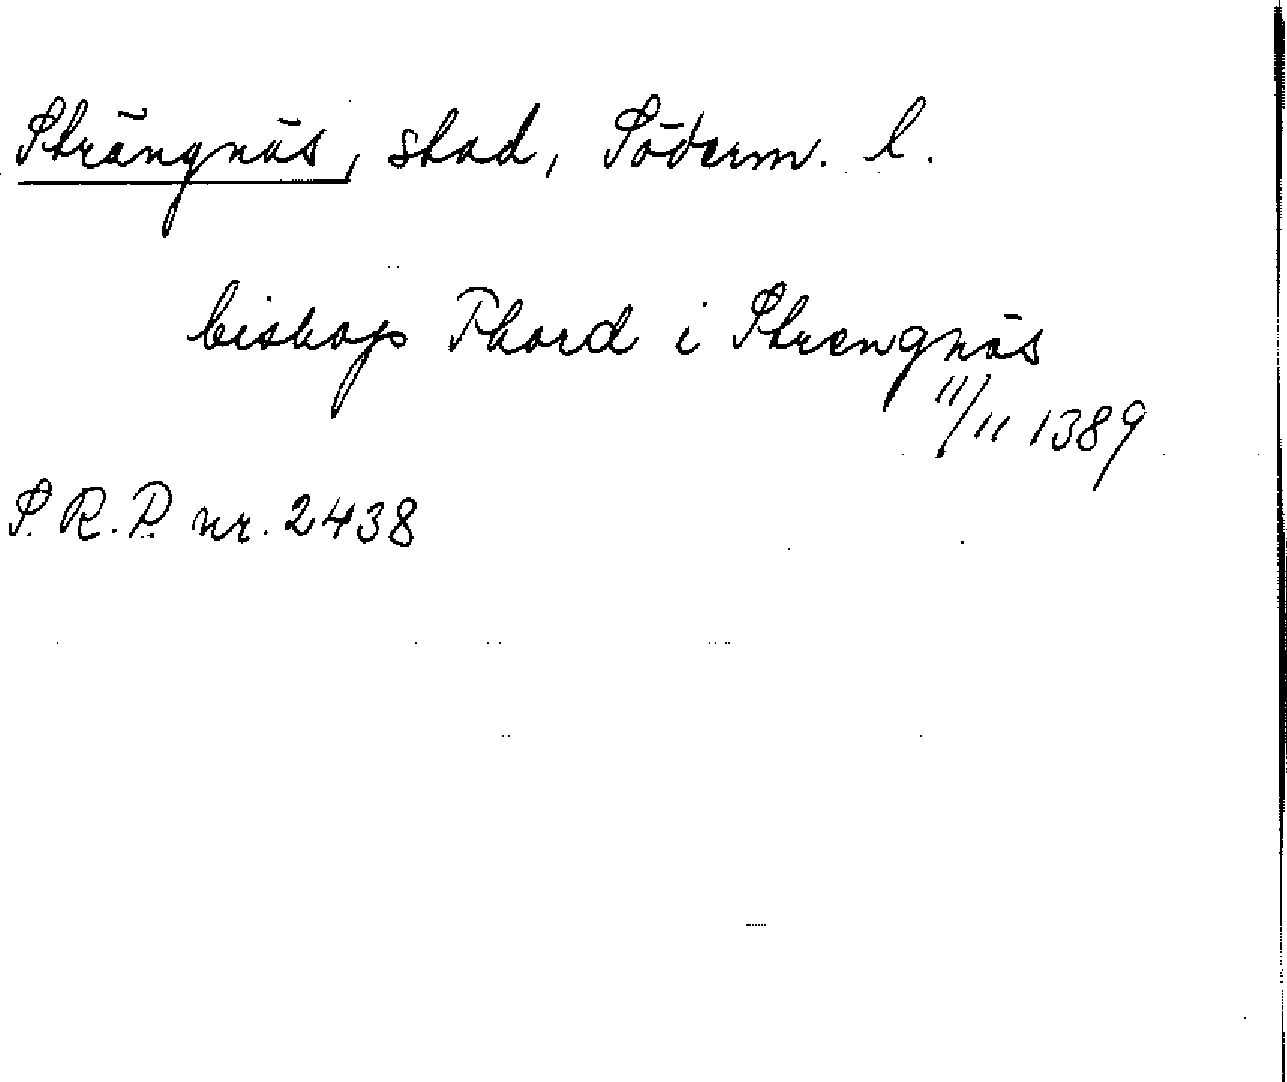 Strängnäs, stad, Söderm. l.
biskop Thord i Strengnäs
11/11 1389
S.R.P. nr. 2438